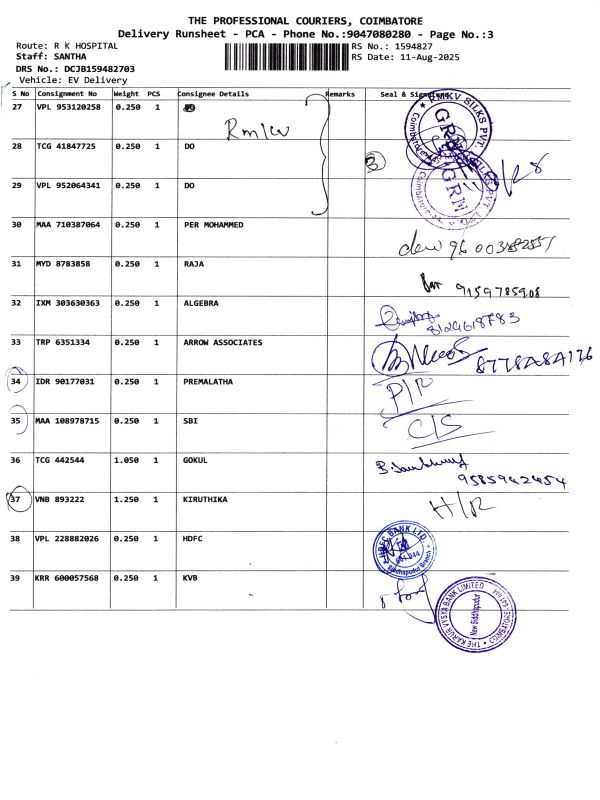 THE PROFESSIONAL COURIERS, COIMBATORE
Delivery Runsheet - PCA - Phone No.:9047080280 - Page No.:3
Route: R K HOSPITAL RS No.: 1594827
Staff: SANTHA RS Date: 11-Aug-2025
DRS No.: DCJB159482703
Vehicle: EV Delivery
S No Consignment No Weight PCS Consignee Details Remarks Seal &
27 VPL 953120258 0.250 1
Rmkv
28 TCG 41847725 0.250 1 DO
3
29 VPL 952064341 0.250 1 DO
30 MAA 710387064 0.250 1 PER MOHAMMED
31 MYD 8783858 0.250 1 RAJA
9159785908
32 IXM 303630363 0.250 1 ALGEBRA
8129618783
33 TRP 6351334 0.250 1 ARROW ASSOCIATES
34 IDR 90177031 0.250 1 PREMALATHA P/R
35 MAA 108978715 0.250 1 SBI C/S
36 TCG 442544 1.050 1 GOKUL
9585942454
37 VNB 893222 1.250 1 KIRUTHIKA H/R
38 VPL 228882026 0.250 1 HDFC
HDFC BANK LTD.
39 KRR 600057568 0.250 1 KVB
THE KARUR VYSYA BANK LIMITED
New Siddhapudur
COIMBATORE